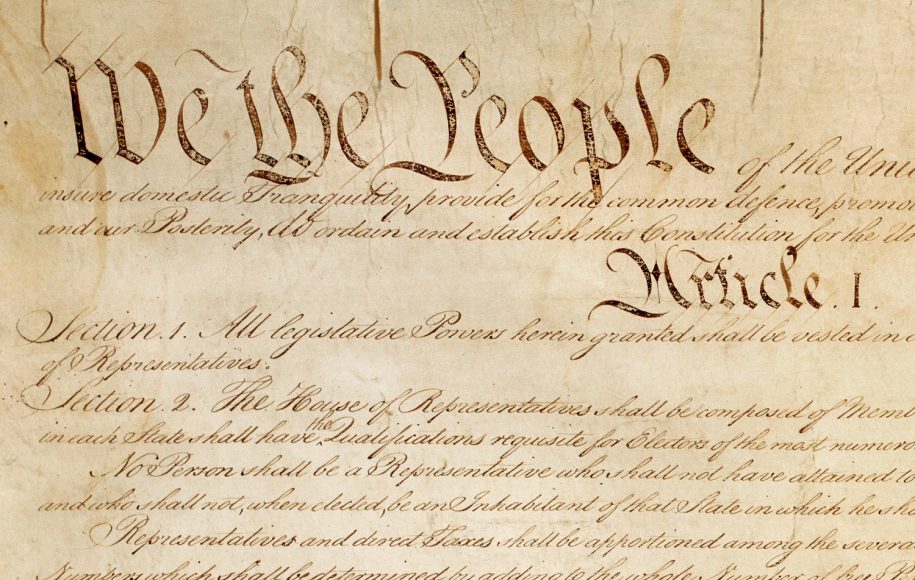 We the People of the Uni
insure domestic Tranquility, provide for the common defence, promo
and our Posterity, do ordain and establish this Constitution for the Un
Article. I.
Section. 1. All legislative Powers herein granted shall be vested in a
of Representatives.
Section. 2. The House of Representatives shall be composed of Memb
in each State shall have the Qualifications requisite for Electors of the most numero
No Person shall be a Representative who shall not have attained to
and who shall not, when elected, be an Inhabitant of that State in which he sha
Representatives and direct Taxes shall be apportioned among the severa
Numbers, which shall be determined by adding to the whole Number of free P